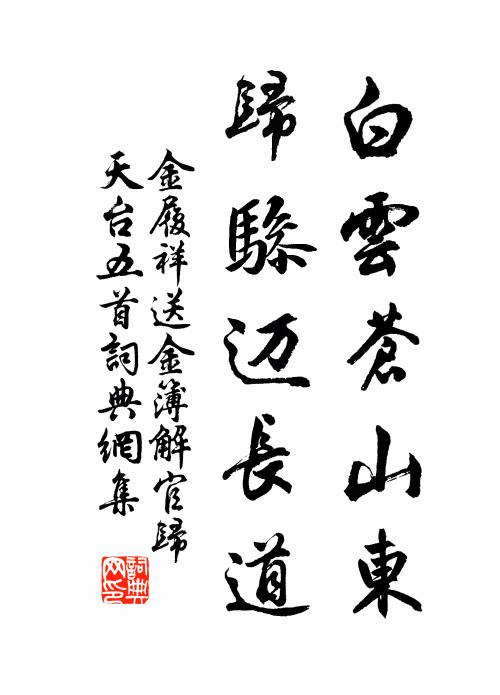 白雲蒼山東
歸驂迈長道
金履祥送金簿解官歸
天台五首詞典網集
詞典網印